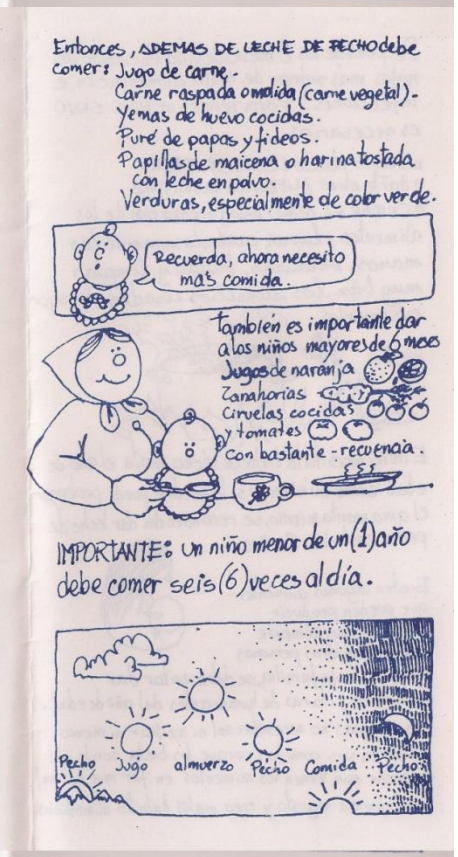 Entonces, ADEMAS DE LECHE DE PECHO debe
comer: Jugo de carne.
Carne raspada o molida (carne vegetal).
Yemas de huevo cocidas.
Puré de papas y fideos.
Papillas de maicena o harina tostada
con leche en polvo.
Verduras, especialmente de color verde.
Recuerda, ahora necesito
más comida.
también es importante dar
a los niños mayores de 6 meses
Jugos de naranja
Zanahorias
Ciruelas cocidas
y tomates
con bastante - recuencia.
IMPORTANTE: un niño menor de un (1) año
debe comer seis (6) veces al día.
Pecho Jugo almuerzo Pecho Comida Pecho